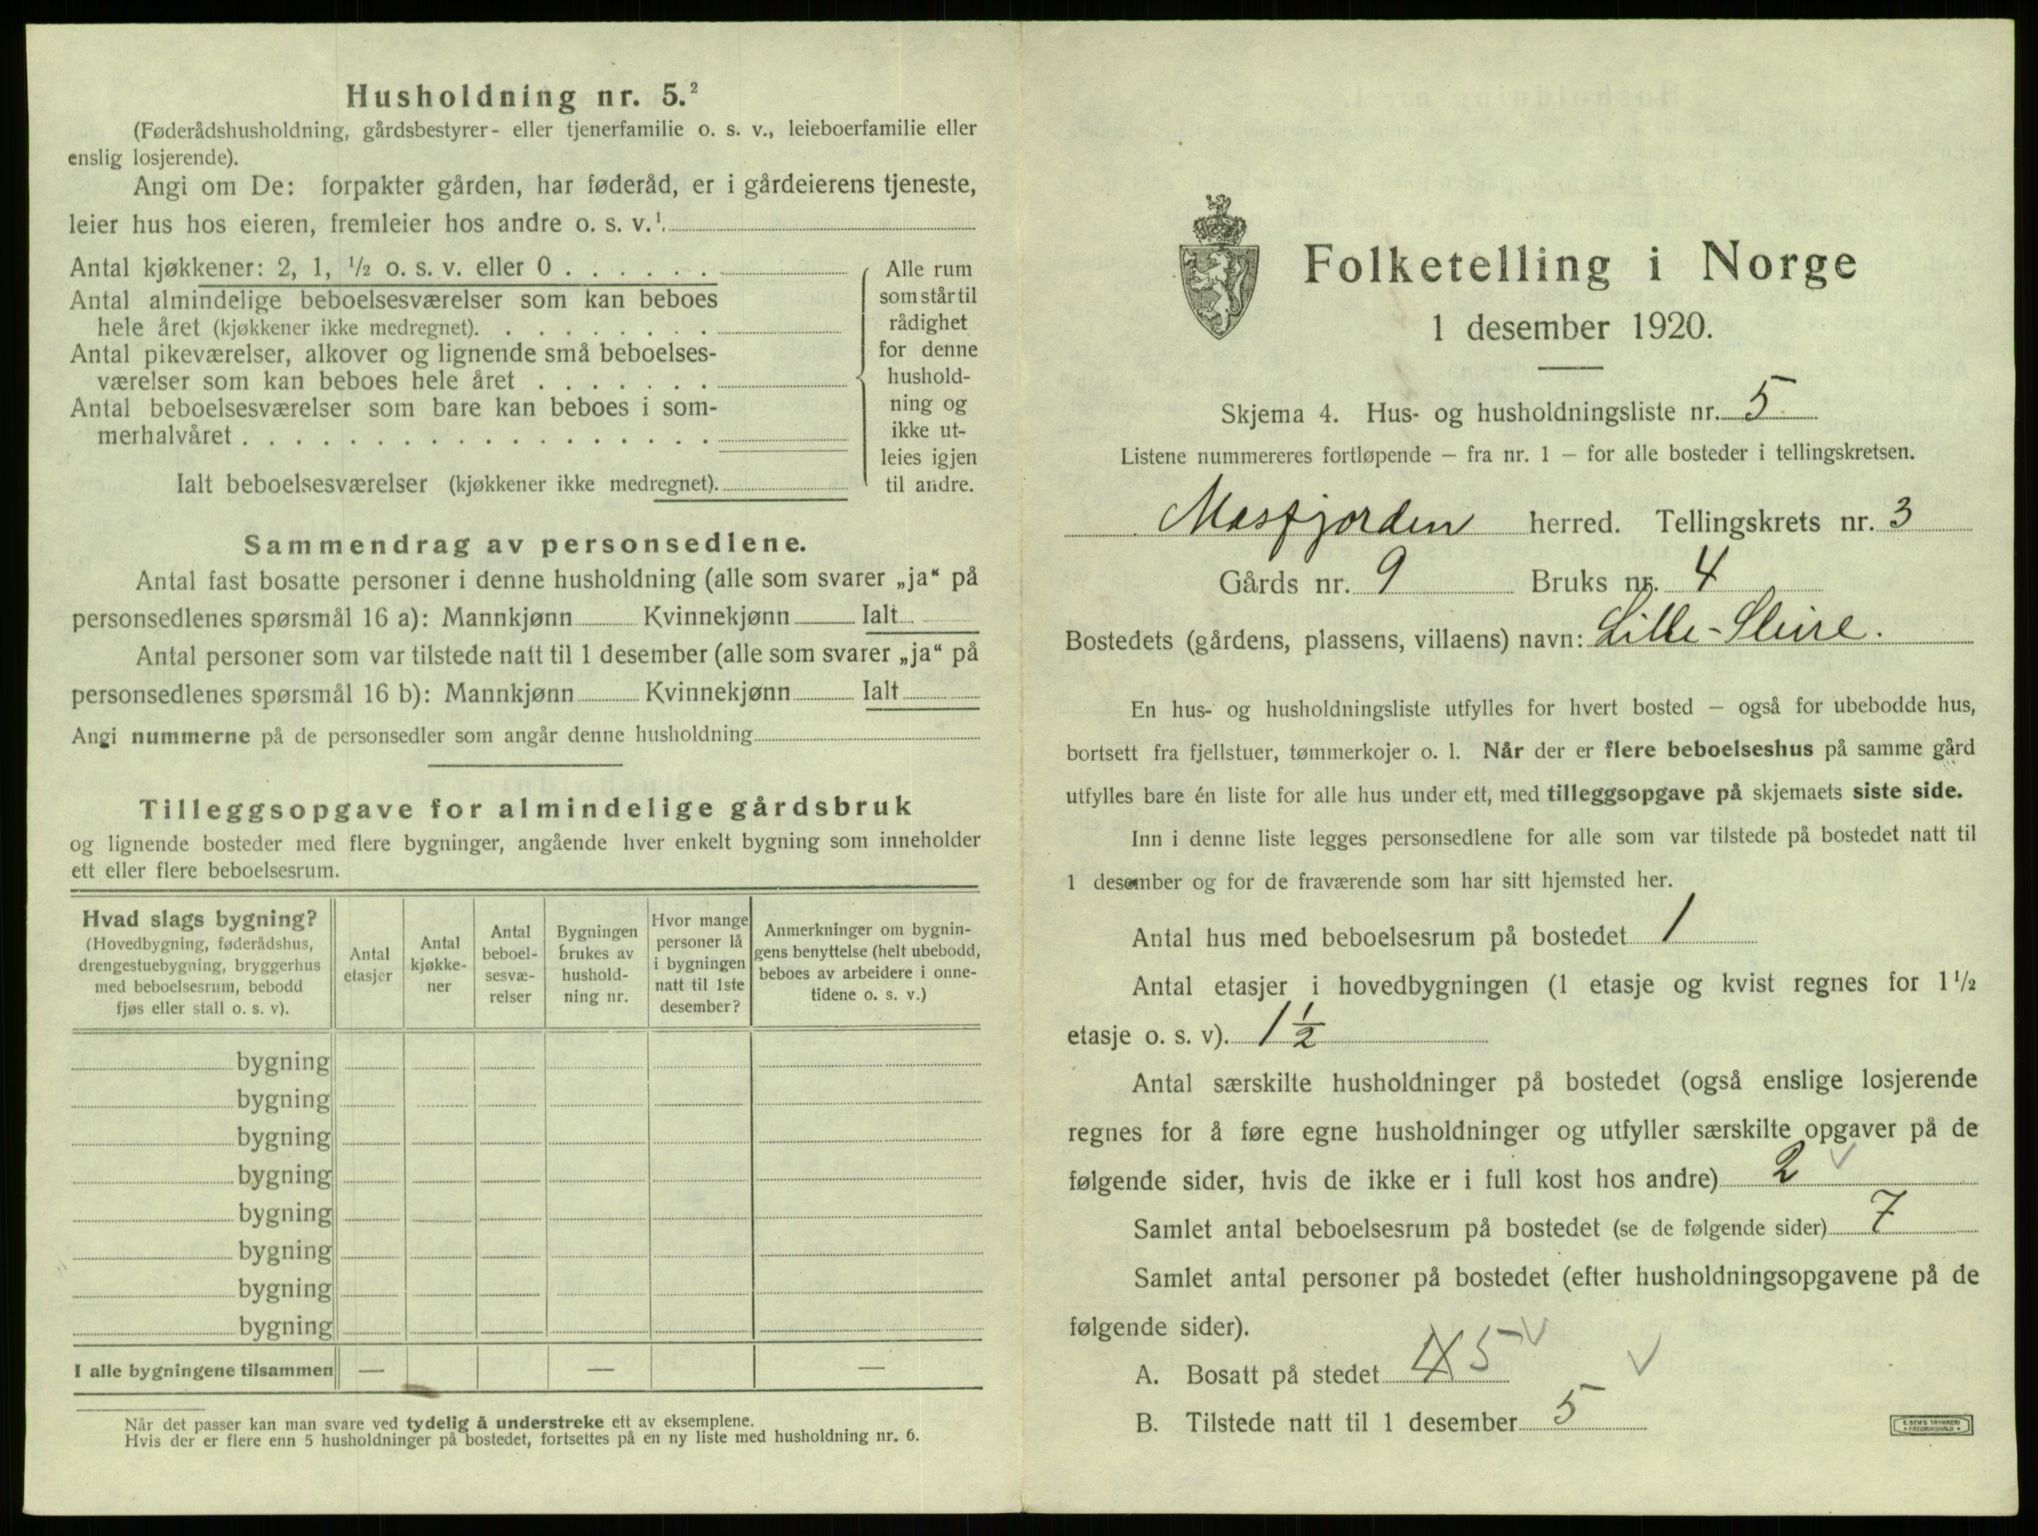 Husholdning nr. 5.²
(Føderådshusholdning, gårdsbestyrer- eller tjenerfamilie o. s. v., leieboerfamilie eller
enslig losjerende).
Angi om De: forpakter gården, har føderåd, er i gårdeierens tjeneste,
leier hus hos eieren, fremleier hos andre o. s. v.¹
Antal kjøkkener: 2, 1, ½ o. s. v. eller 0 . . . . . .
Antal almindelige beboelsesværelser som kan beboes
hele året (kjøkkener ikke medregnet). . . . . . . . .
Antal pikeværelser, alkover og lignende små beboelses-
værelser som kan beboes hele året . . . . . . .
Antal beboelsesværelser som bare kan beboes i som-
merhalvåret . . . . . . . . . . . . . . . . . .
Ialt beboelsesværelser (kjøkkener ikke medregnet).
Alle rum
som står til
rådighet
for denne
hushold-
ning og
ikke ut-
leies igjen
til andre.
Sammendrag av personsedlene.
Antal fast bosatte personer i denne husholdning (alle som svarer „ja“ på
personsedlenes spørsmål 16 a): Mannkjønn Kvinnekjønn Ialt
Antal personer som var tilstede natt til 1 desember (alle som svarer „ja“ på
personsedlenes spørsmål 16 b): Mannkjønn Kvinnekjønn Ialt
Angi nummerne på de personsedler som angår denne husholdning
Tilleggsopgave for almindelige gårdsbruk
og lignende bosteder med flere bygninger, angående hver enkelt bygning som inneholder
ett eller flere beboelsesrum.
Hvad slags bygning?
(Hovedbygning, føderådshus,
drengestuebygning, bryggerhus
med beboelsesrum, bebodd
fjøs eller stall o. s. v).
Antal
etasjer
Antal
kjøkke-
ner
Antal
beboel-
sesvæ-
relser
Bygningen
brukes av
hushold-
ning nr.
Hvor mange
personer lå
i bygningen
natt til 1ste
desember?
Anmerkninger om bygnin-
gens benyttelse (helt ubebodd,
beboes av arbeidere i onne-
tidene o. s. v.)
bygning
bygning
bygning
bygning
bygning
bygning
bygning
bygning
I alle bygningene tilsammen — — —
Når det passer kan man svare ved tydelig å understreke ett av eksemplene.
Hvis der er flere enn 5 husholdninger på bostedet, fortsettes på en ny liste med husholdning nr. 6.
Folketelling i Norge
1 desember 1920.
Skjema 4. Hus- og husholdningsliste nr. 5
Listene nummereres fortløpende — fra nr. 1 — for alle bosteder i tellingskretsen.
Masfjorden herred. Tellingskrets nr. 3
Gårds nr. 9 Bruks nr. 4
Bostedets (gårdens, plassens, villaens) navn: Lille-Sleire.
En hus- og husholdningsliste utfylles for hvert bosted — også for ubebodde hus,
bortsett fra fjellstuer, tømmerkojer o. l. Når der er flere beboelseshus på samme gård
utfylles bare én liste for alle hus under ett, med tilleggsopgave på skjemaets siste side.
Inn i denne liste legges personsedlene for alle som var tilstede på bostedet natt til
1 desember og for de fraværende som har sitt hjemsted her.
Antal hus med beboelsesrum på bostedet 1
Antal etasjer i hovedbygningen (1 etasje og kvist regnes for 1½
etasje o. s. v). 1½
Antal særskilte husholdninger på bostedet (også enslige losjerende
regnes for å føre egne husholdninger og utfyller særskilte opgaver på de
følgende sider, hvis de ikke er i full kost hos andre) 2 ✓
Samlet antal beboelsesrum på bostedet (se de følgende sider) 7
Samlet antal personer på bostedet (efter husholdningsopgavene på de
følgende sider).
A. Bosatt på stedet 5 ✓ ✓
B. Tilstede natt til 1 desember 5